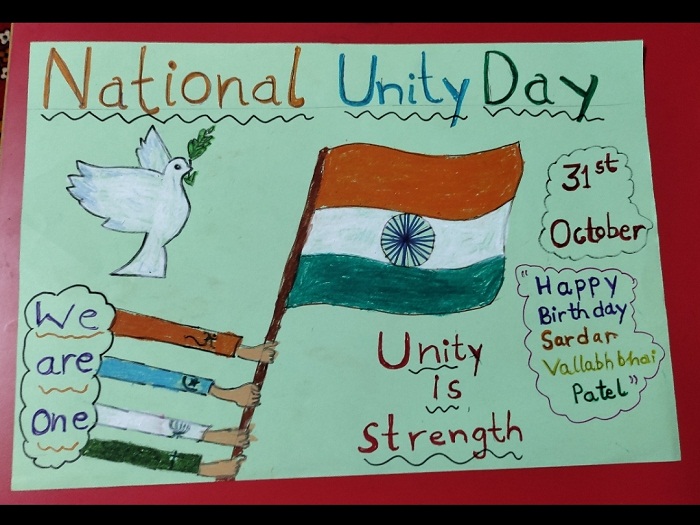 National Unity Day
31st
October
"Happy
Birthday
Sardar
Vallabhbhai
Patel"
We
are
one
Unity
is
Strength